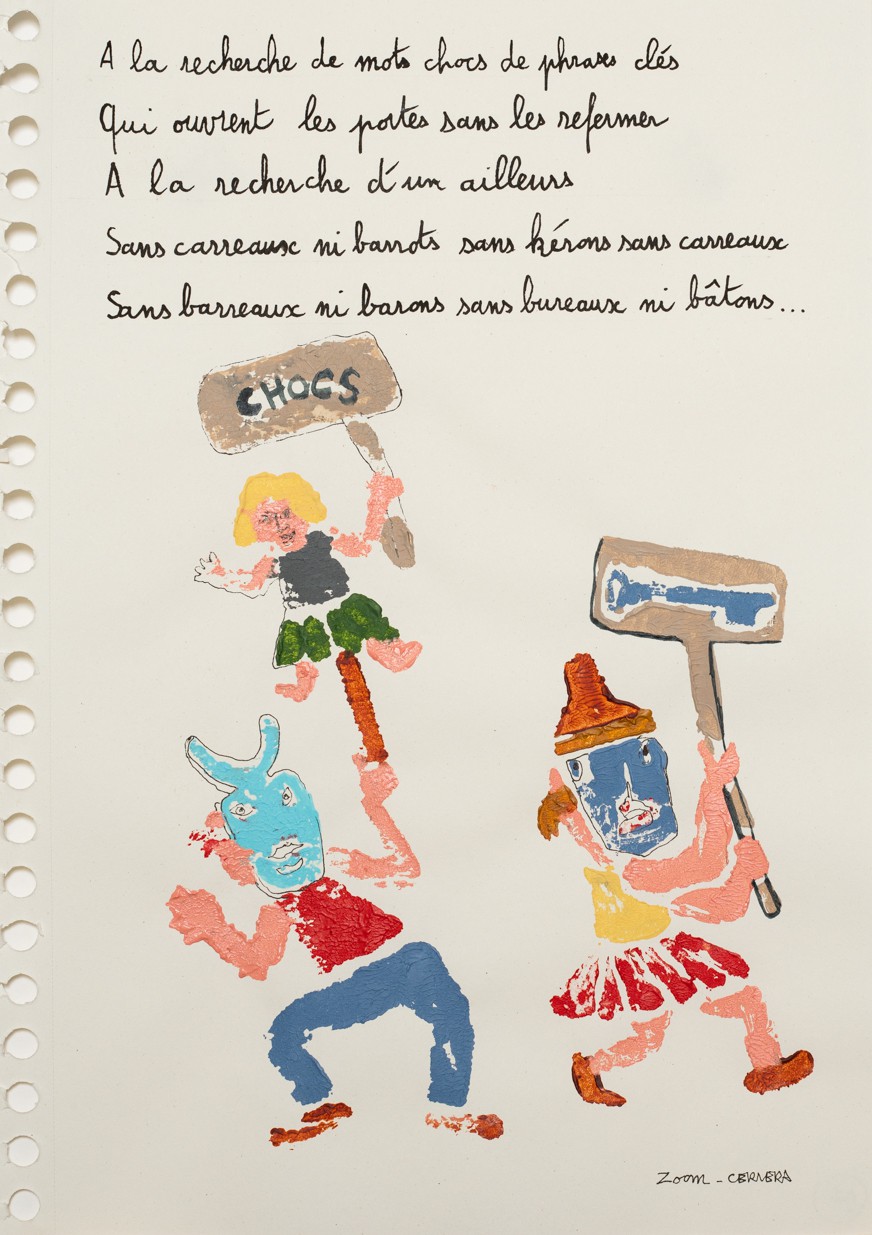 A la recherche de mots chocs de phrases clés
Qui ouvrent les portes sans les refermer
A la recherche d'un ailleurs
Sans carreaux ni barrots sans kérons sans carreaux
Sans barreaux ni barons sans bureaux ni bâtons...
CHOCS
Zoom - CERVERA